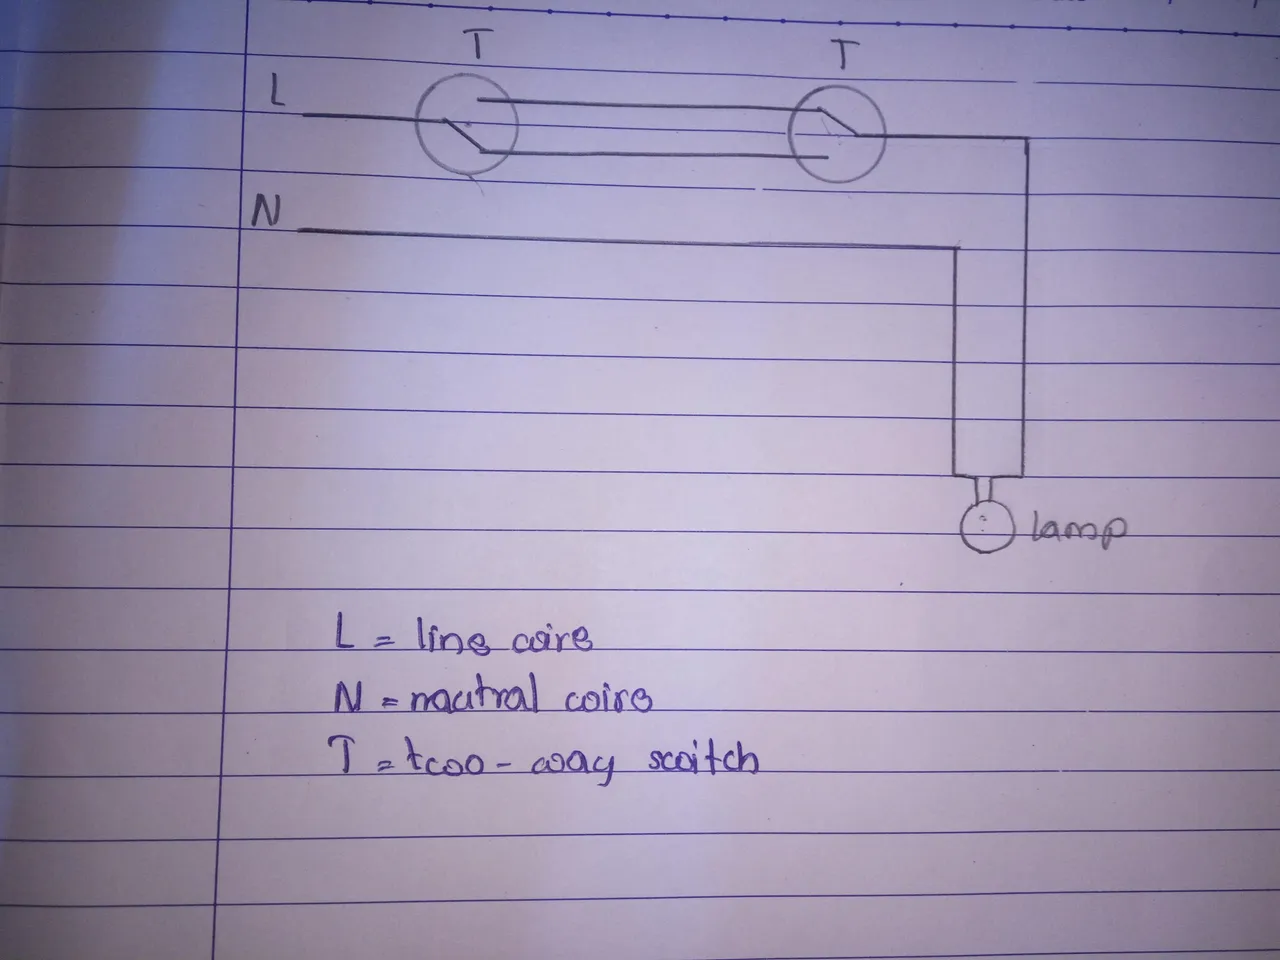 T T
L
N
lamp
L = line wire
N = nautral wire
T = two-way switch